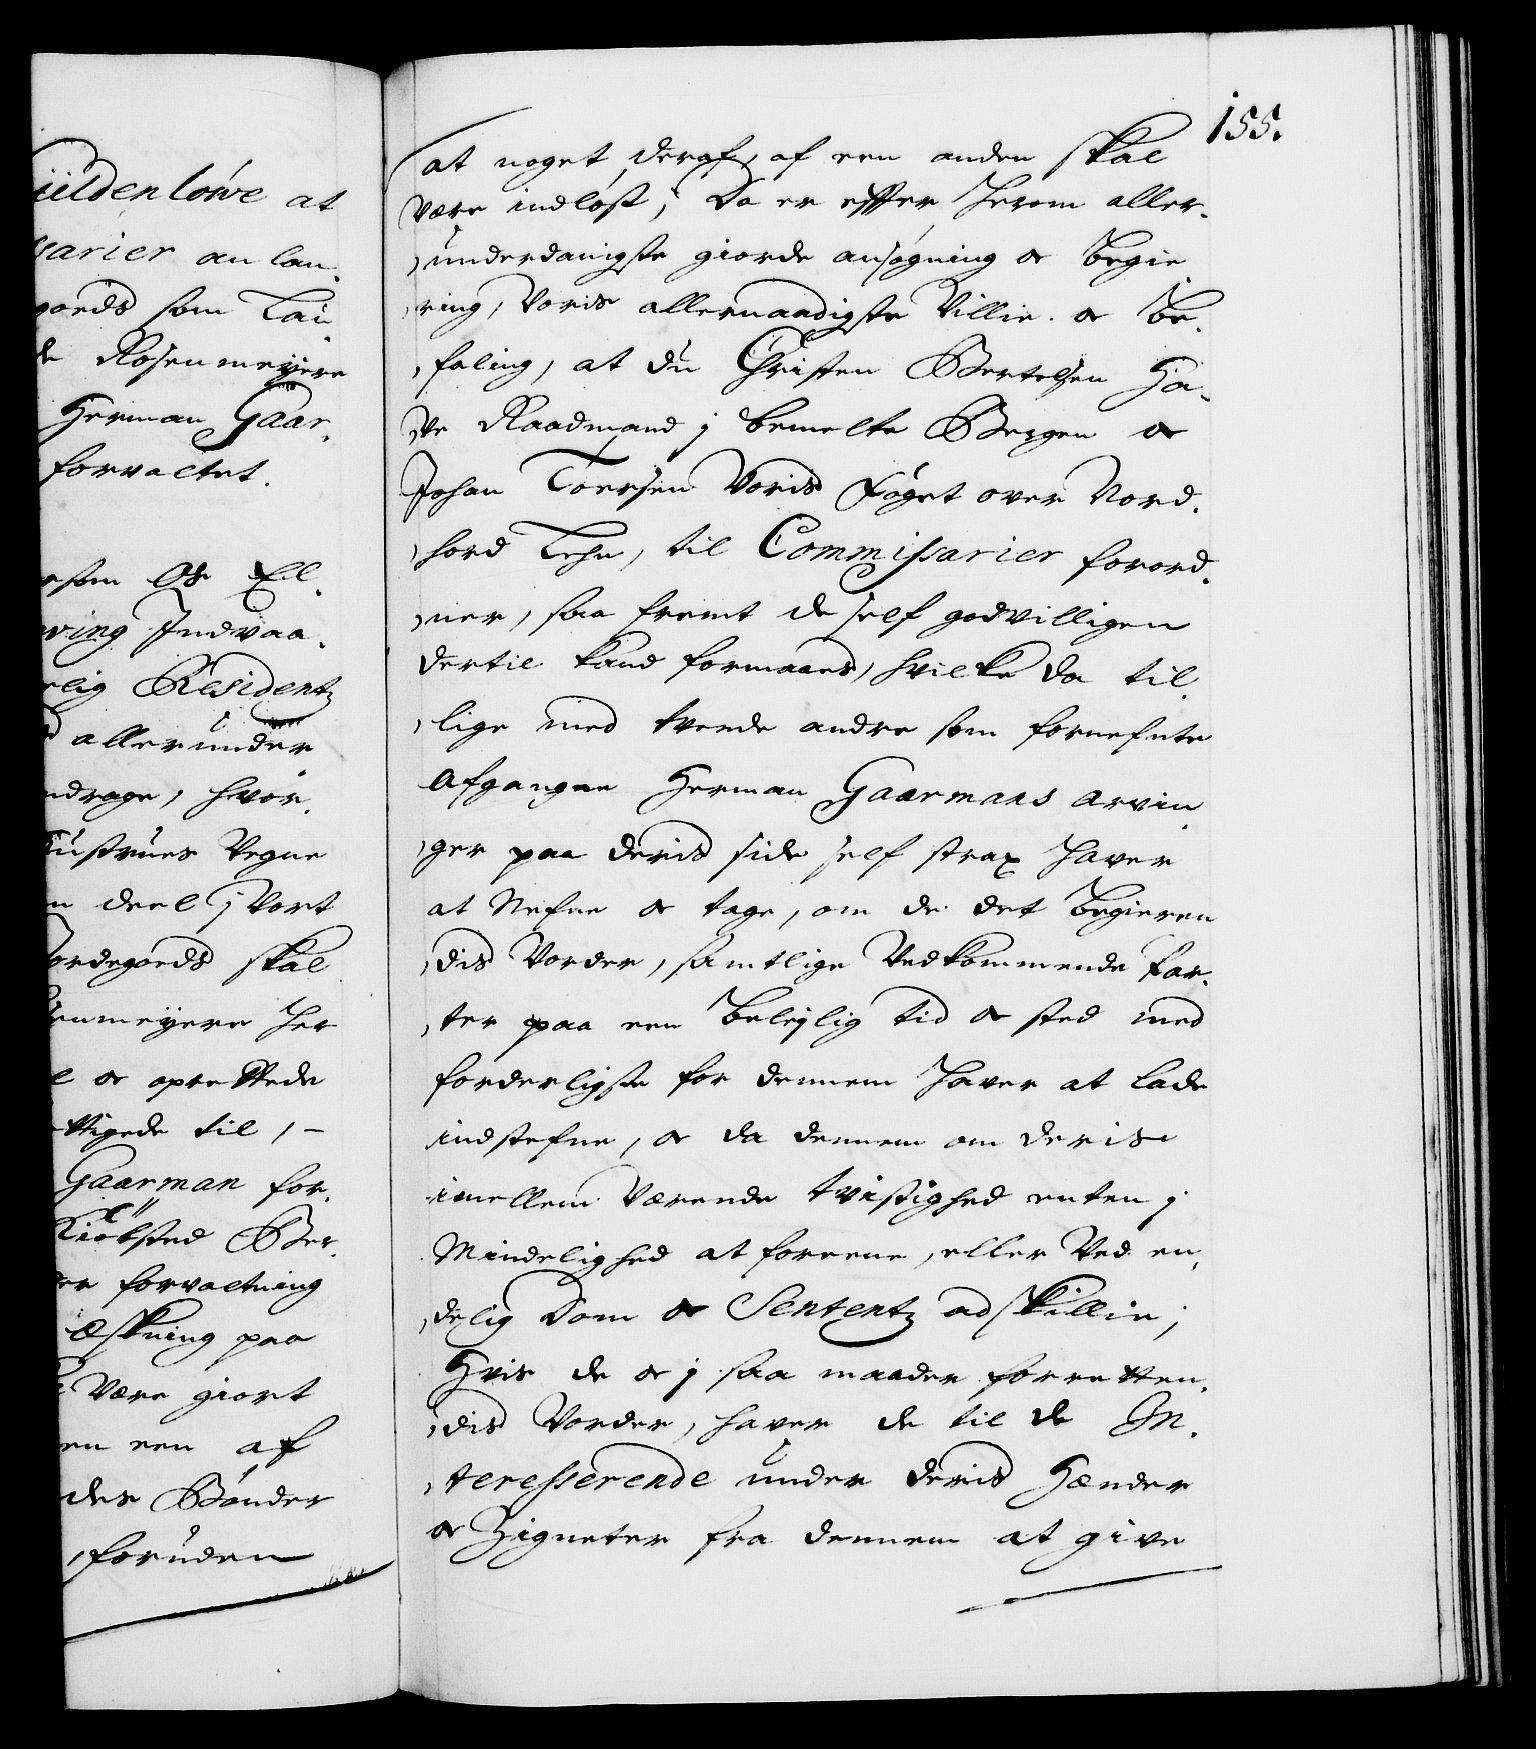 üldenlöwe at
sarier an lan,
goeds som Lau,
de Rosenmeyere
Herman Gaar,
forvaltet.
som Os El,
ring Indvaa,
lig Residentz
allerunder
ndrage, hvor,
Hustrues Vegne
deel j Vort
Jordegoeds skal
enmeyere her
e oprettede
ttigede til, -
Gaarman for,
Kiöbsted Ber,
der forvaltning
Æskning paa
Være giort
en een af
des Bönder
, foruden
155.
at noget deraf, af een anden skal
være indlöst; Da er effter herom aller,
, underdanigste giorde ansögning oc begie
, ring, Voris allernaadigste Villie oc be,
, faling, at du Christen Bertelsen Ga,
, de Raadmand j bemelte Bergen oc
Johan Toersen Voris Foget over Nord,
, hord Lehn, til Commissarier forord,
, ner, saa fremt de self godvilligen
dertil kand formaaes, hvilke da til,
, lige med tvende andre som fornefnte
Afgangne Herman Gaarmans Arvin
, ger paa deris side self strax haver
at Nefne oc tage, om de det begieren
, dis Vorder, samtlige Vedkommende Par,
, ter paa een beleylig tid oc sted med
forderligste for dennem haver at lade
indstefne, oc da dennem om deris
imellem Værende tvistighed enten j
Mindelighed at foreene, eller Ved en,
, delig Dom oc Sententz adskillie;
Hvis de oc j saa maader forretten,
, dis Vorder, haver de til de In,
, teresserende under deris Hænder
oc Zigneter fra dennem at give